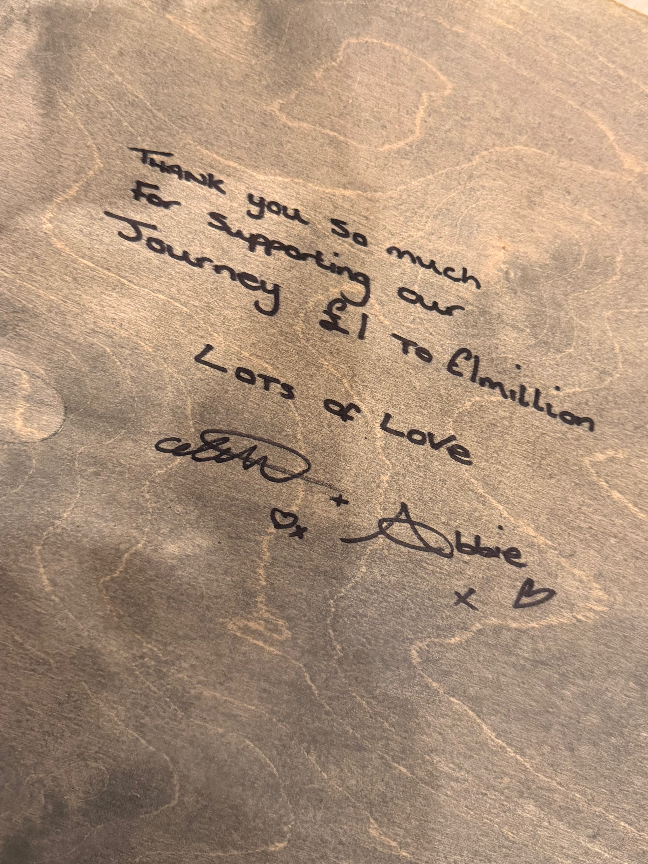 THANK you so much
For supporting our
Journey £1 TO £1million
LOTS of LOVE
+ Abbie
x
x